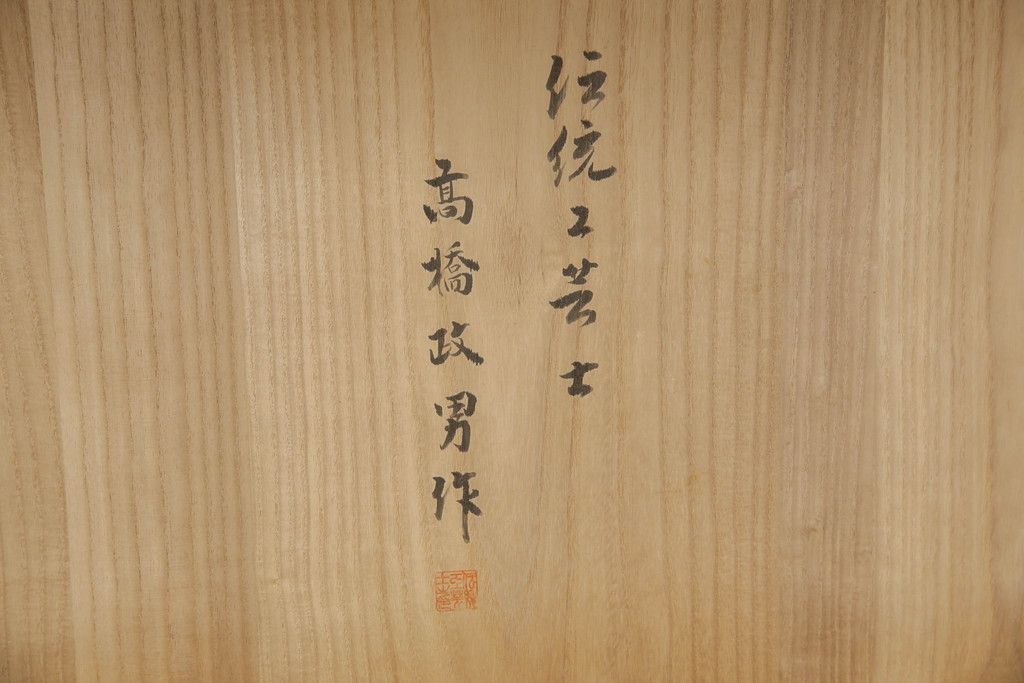 伝統工芸士
髙橋政男作